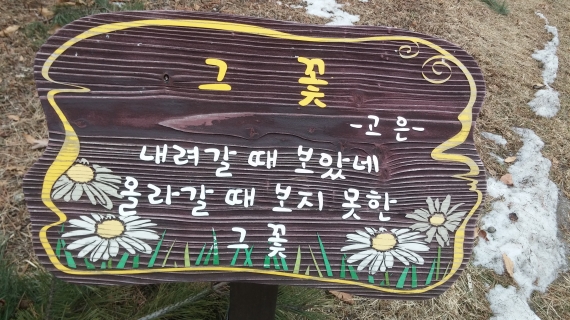 그 꽃
-고 은-
내려갈 때 보았네
올라갈 때 보지 못한
그 꽃